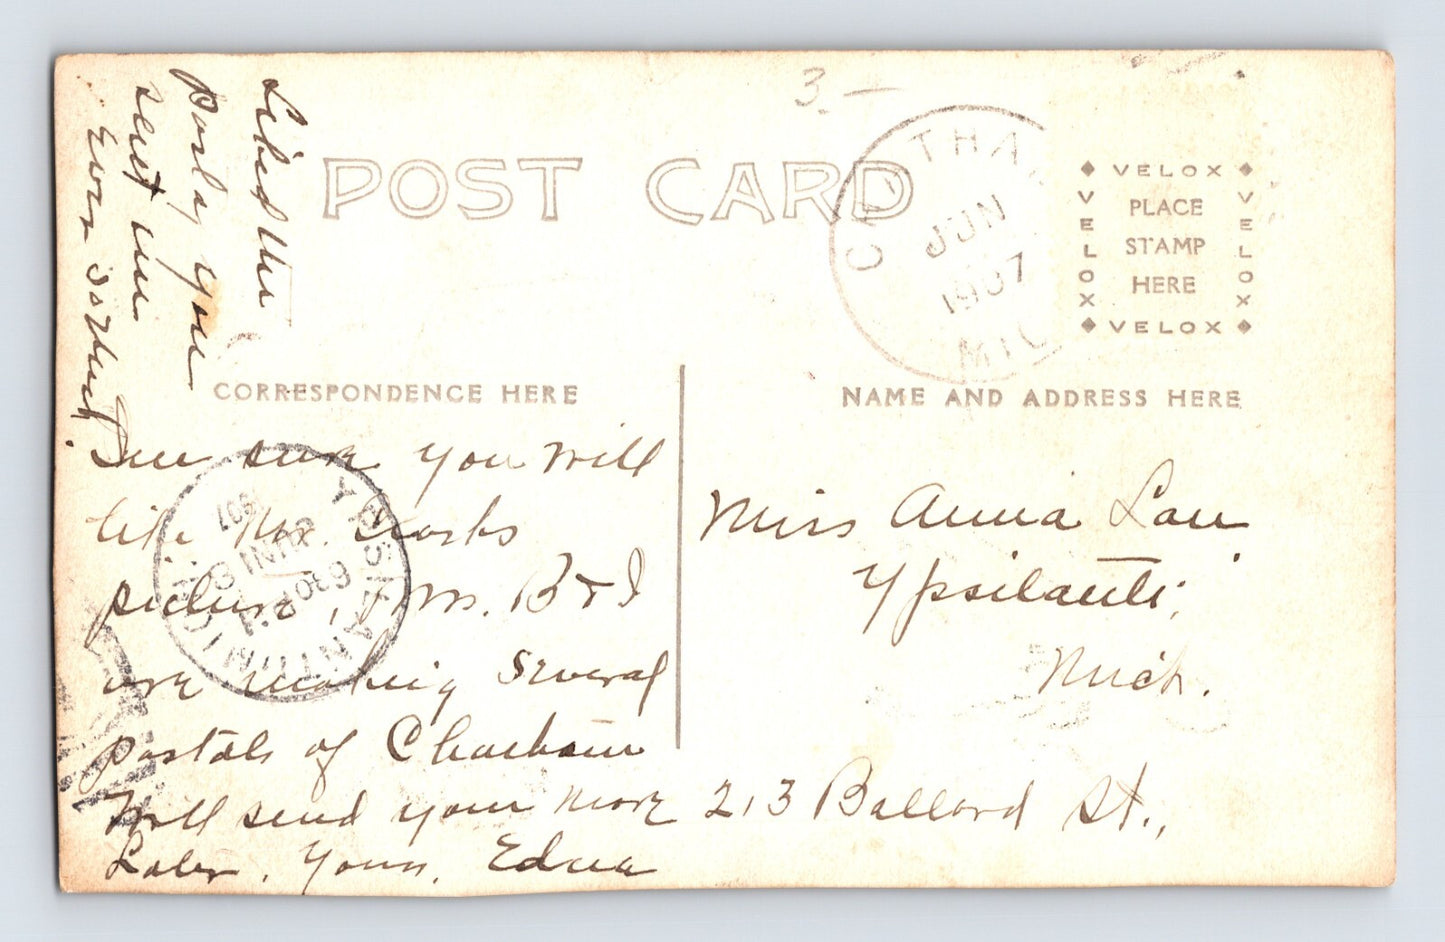 3.—
POST CARD
CHATHA
JUN
1907
MIC
VELOX
VELOX PLACE VELOX
STAMP
HERE
VELOX
CORRESPONDENCE HERE
NAME AND ADDRESS HERE
Liked the
you
sent me
Ever so much.
sure you will
like Mr.
picture, Mr. B & I
are making several
postals of Chatham
Will send you more
Later. Yours, Edna
YPSILANTI MICH.
JUN
630 P M
1907
Miss Anna Lau
Ypsilanti,
Mich.
213 Ballard St.,